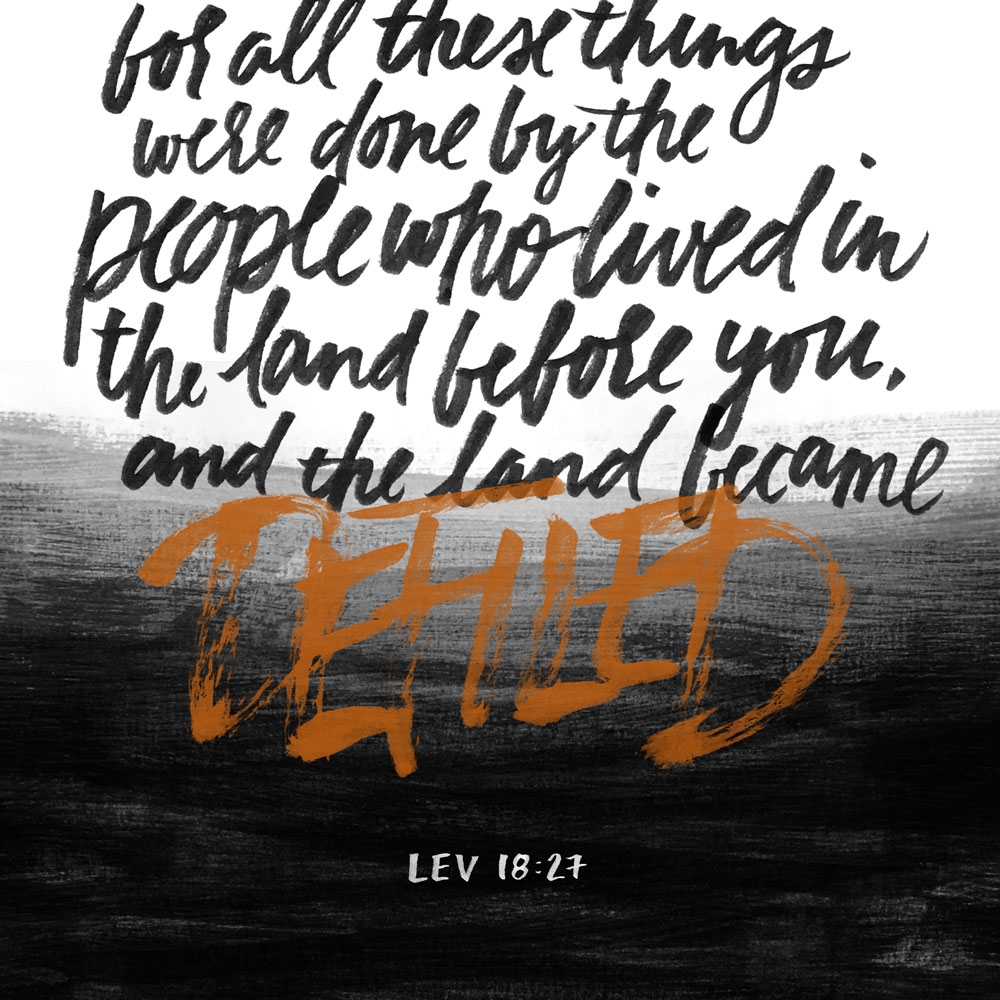 for all these things
were done by the
people who lived in
the land before you,
and the land became
DEFILED
LEV 18:27